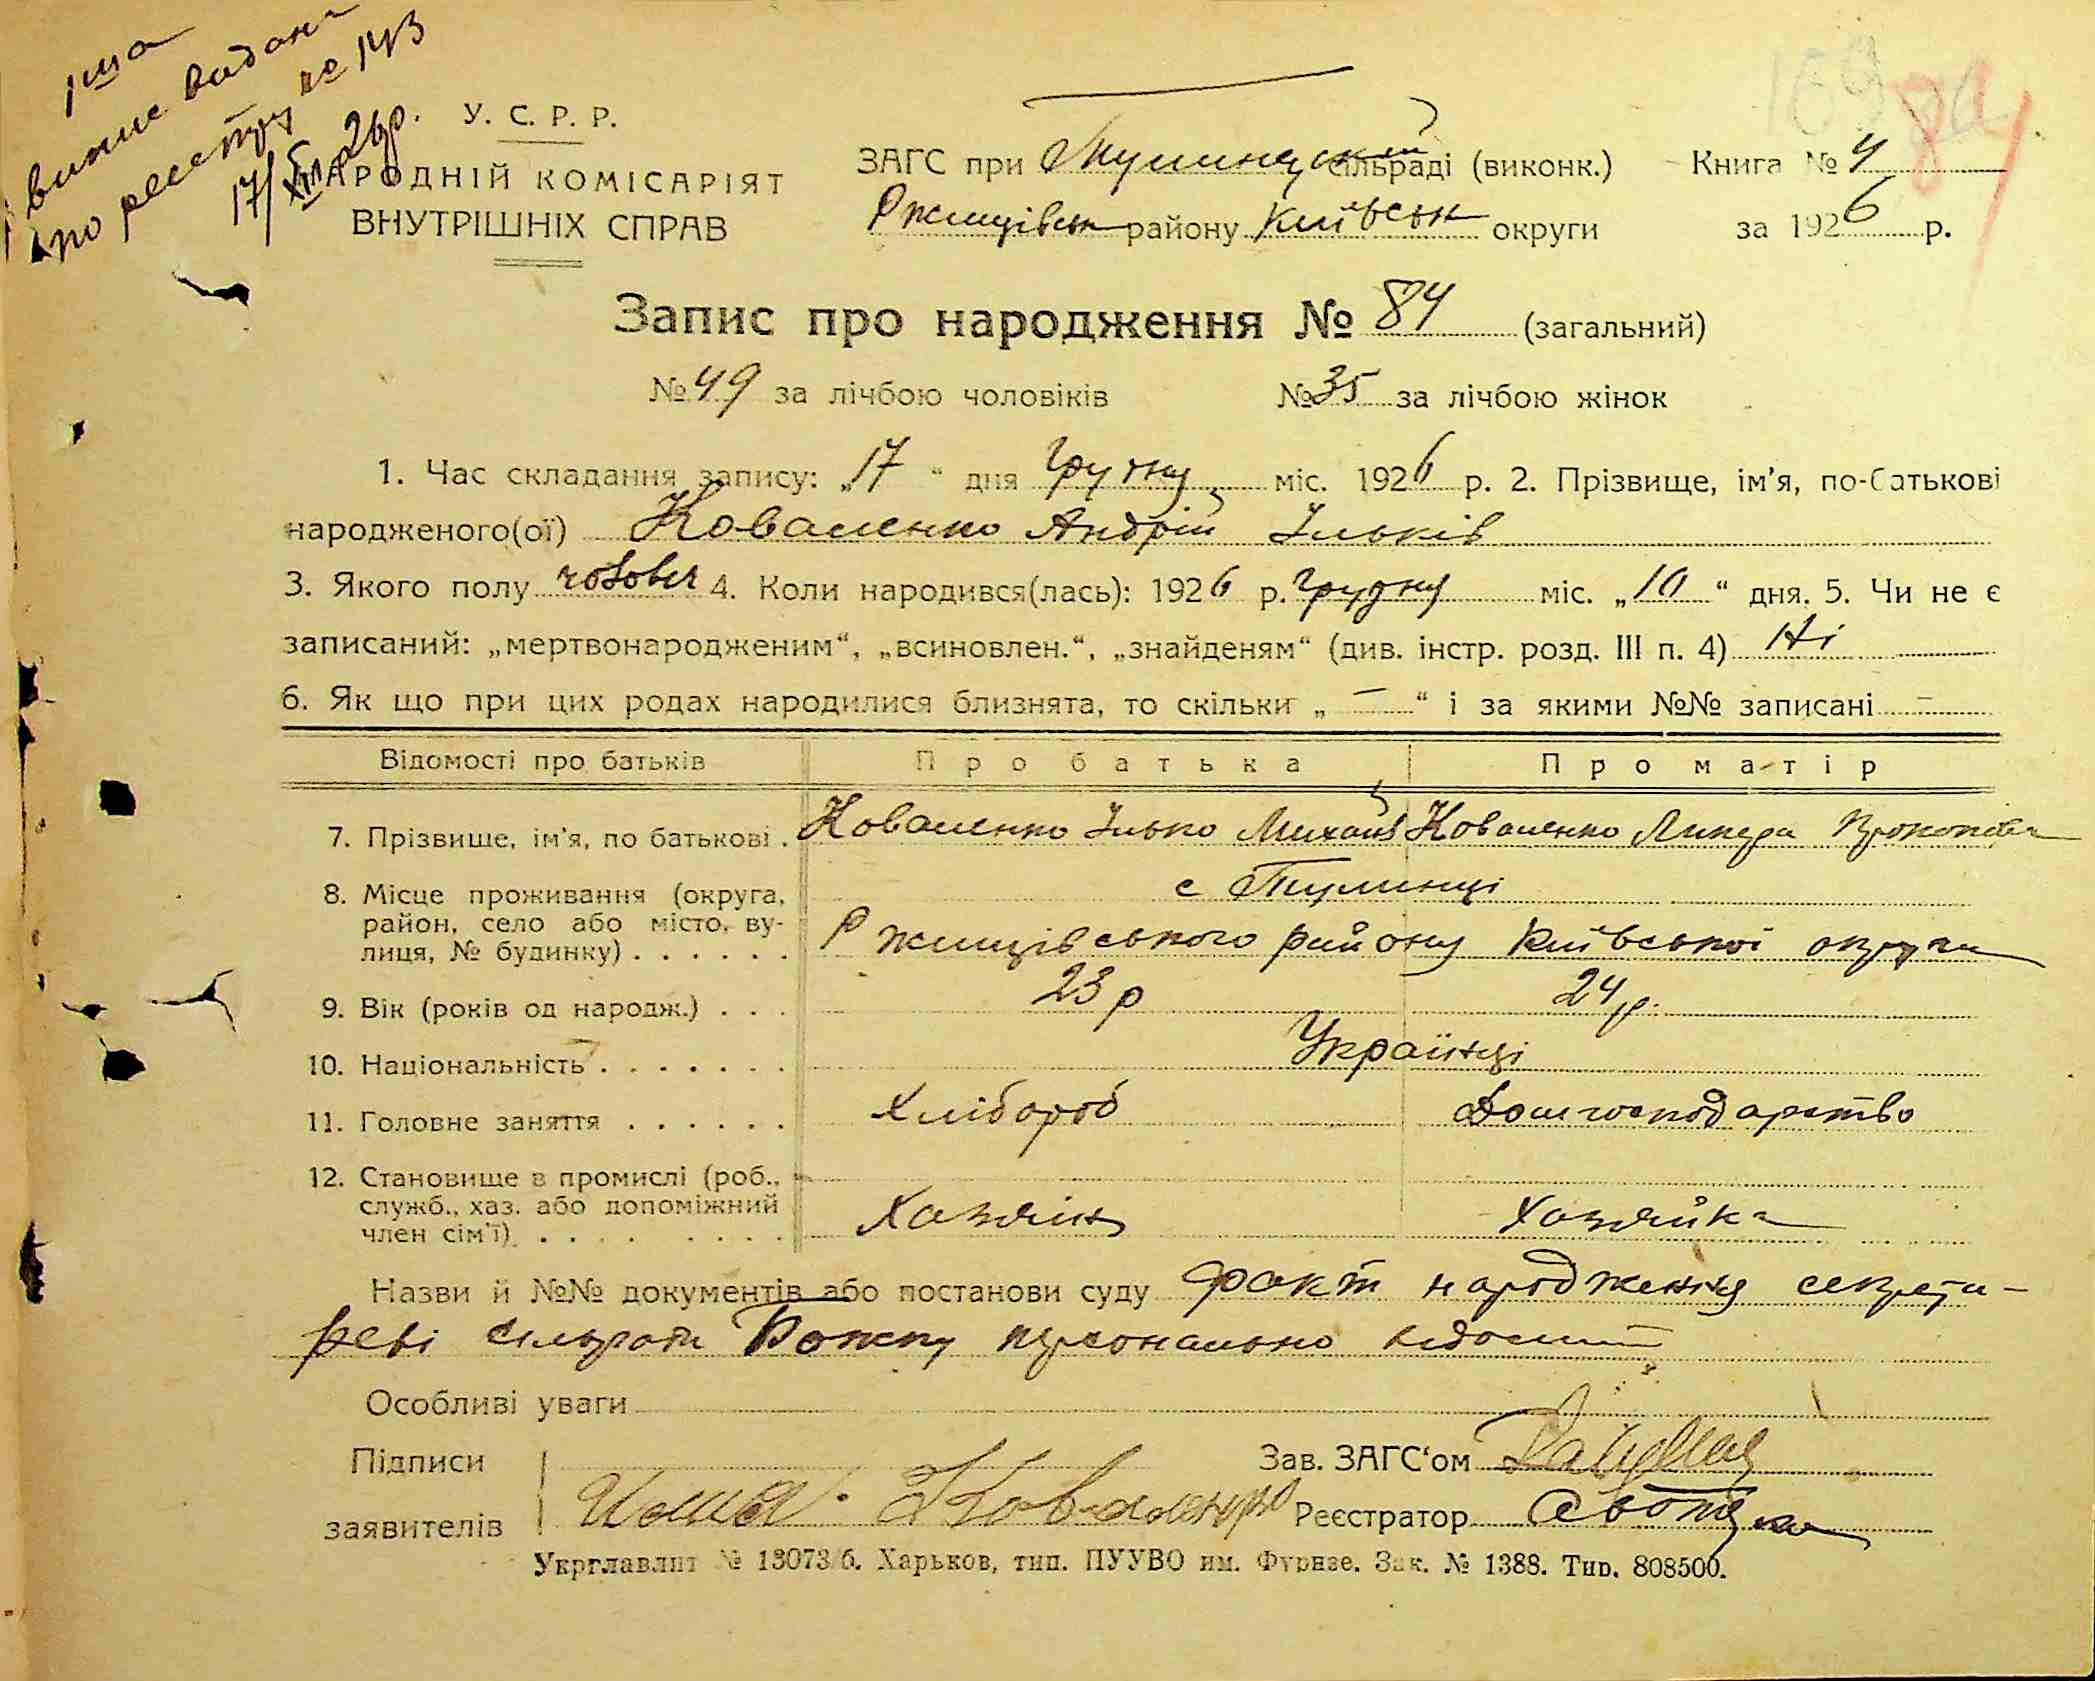 1ша
випис видана
по реєстру № 143
17/XII 26р.
169 84
У. С. Р. Р.
НАРОДНІЙ КОМІСАРІЯТ
ВНУТРІШНІХ СПРАВ
ЗАГС при Тулинецькій сільраді (виконк.) Книга № 4
Ржищівськ району Київськ округи за 1926 р.
Запис про народження № 84 (загальний)
№ 49 за лічбою чоловіків № 35 за лічбою жінок
1. Час складання запису: „17“ дня грудня міс. 1926 р. 2. Прізвище, ім'я, по-батькові
народженого(ої) Коваленко Андрій Ільків
3. Якого полу чоловіч 4. Коли народився(лась): 1926 р. грудня міс. „10“ дня. 5. Чи не є
записаний: „мертвонародженим“, „всиновлен.“, „знайденям“ (див. інстр. розд. III п. 4) Ні
6. Як що при цих родах народилися близнята, то скільки „ — “ і за якими №№ записані —
Відомості про батьків Про батька Про матір
7. Прізвище, ім'я, по батькові . Коваленко Ілько Михайл Коваленко Ликера Прокопівна
8. Місце проживання (округа, район, село або місто, вулиця, № будинку) . . . . . . с Тулинці
Ржищівського району Київської округи
9. Вік (років од народж.) . . . 23 р 24 р.
10. Національність . . . . . . . Українці
11. Головне заняття . . . . . . Хлібороб Домгосподарство
12. Становище в промислі (роб., служб., хаз. або допоміжний член сім'ї) . . . . . . . . Хазяїн Хазяйка
Назви й №№ документів або постанови суду факт народження секрета-
реві сільради Божку персонально відомий
Особливі уваги
Підписи
заявителів Илля Коваленко
Зав. ЗАГС'ом
Реєстратор
Укрглавліт № 13073/б. Харьков, тип. ПУУВО им. Фрунзе. Зак. № 1388. Тир. 808500.